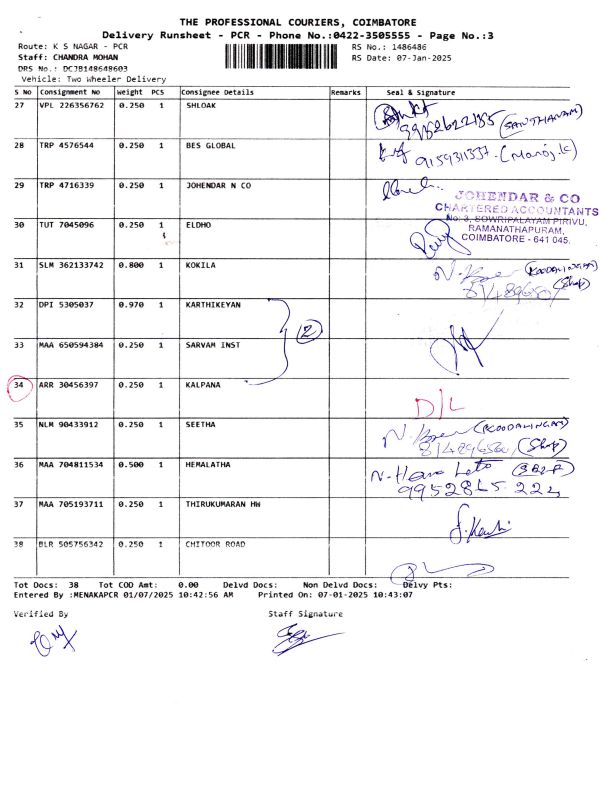 THE PROFESSIONAL COURIERS, COIMBATORE
Delivery Runsheet - PCR - Phone No.:0422-3505555 - Page No.:3
Route: K S NAGAR - PCR RS No.: 1486486
Staff: CHANDRA MOHAN RS Date: 07-Jan-2025
DRS No.: DCJB148648603
Vehicle: Two Wheeler Delivery
S No Consignment No Weight PCS Consignee Details Remarks Seal & Signature
27 VPL 226356762 0.250 1 SHLOAK (SANTHANAM)
28 TRP 4576544 0.250 1 BES GLOBAL 9159311337 - (Manoj.K)
29 TRP 4716339 0.250 1 JOHENDAR N CO
JOHENDAR & CO
CHARTERED ACCOUNTANTS
No: 3, SOWRIPALAYAM PIRIVU,
RAMANATHAPURAM,
COIMBATORE - 641 045.
30 TUT 7045096 0.250 1 ELDHO
31 SLM 362133742 0.800 1 KOKILA (Shop)
32 DPI 5305037 0.970 1 KARTHIKEYAN
2
33 MAA 650594384 0.250 1 SARVAM INST
34 ARR 30456397 0.250 1 KALPANA D/L
35 NLM 90433912 0.250 1 SEETHA (Shop)
36 MAA 704811534 0.500 1 HEMALATHA N. Hema Latha
37 MAA 705193711 0.250 1 THIRUKUMARAN HW
38 BLR 505756342 0.250 1 CHITOOR ROAD
Tot Docs: 38 Tot COD Amt: 0.00 Delvd Docs: Non Delvd Docs: Delvy Pts:
Entered By :MENAKAPCR 01/07/2025 10:42:56 AM Printed On: 07-01-2025 10:43:07
Verified By Staff Signature